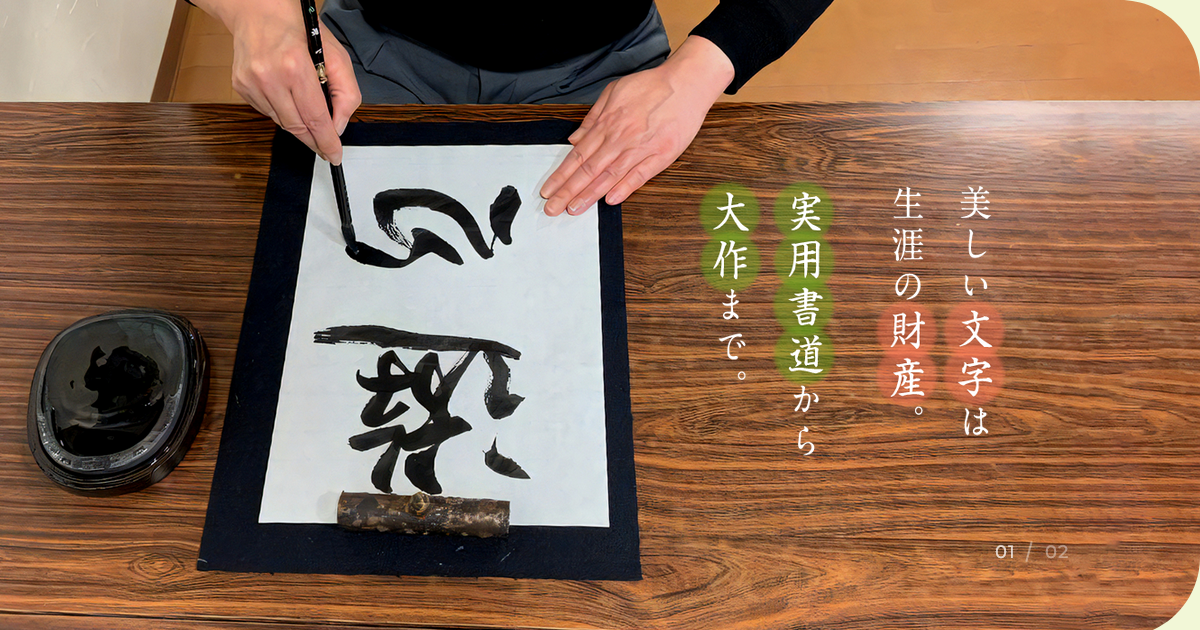 美しい文字は
生涯の財産。
実用書道から
大作まで。
01 / 02